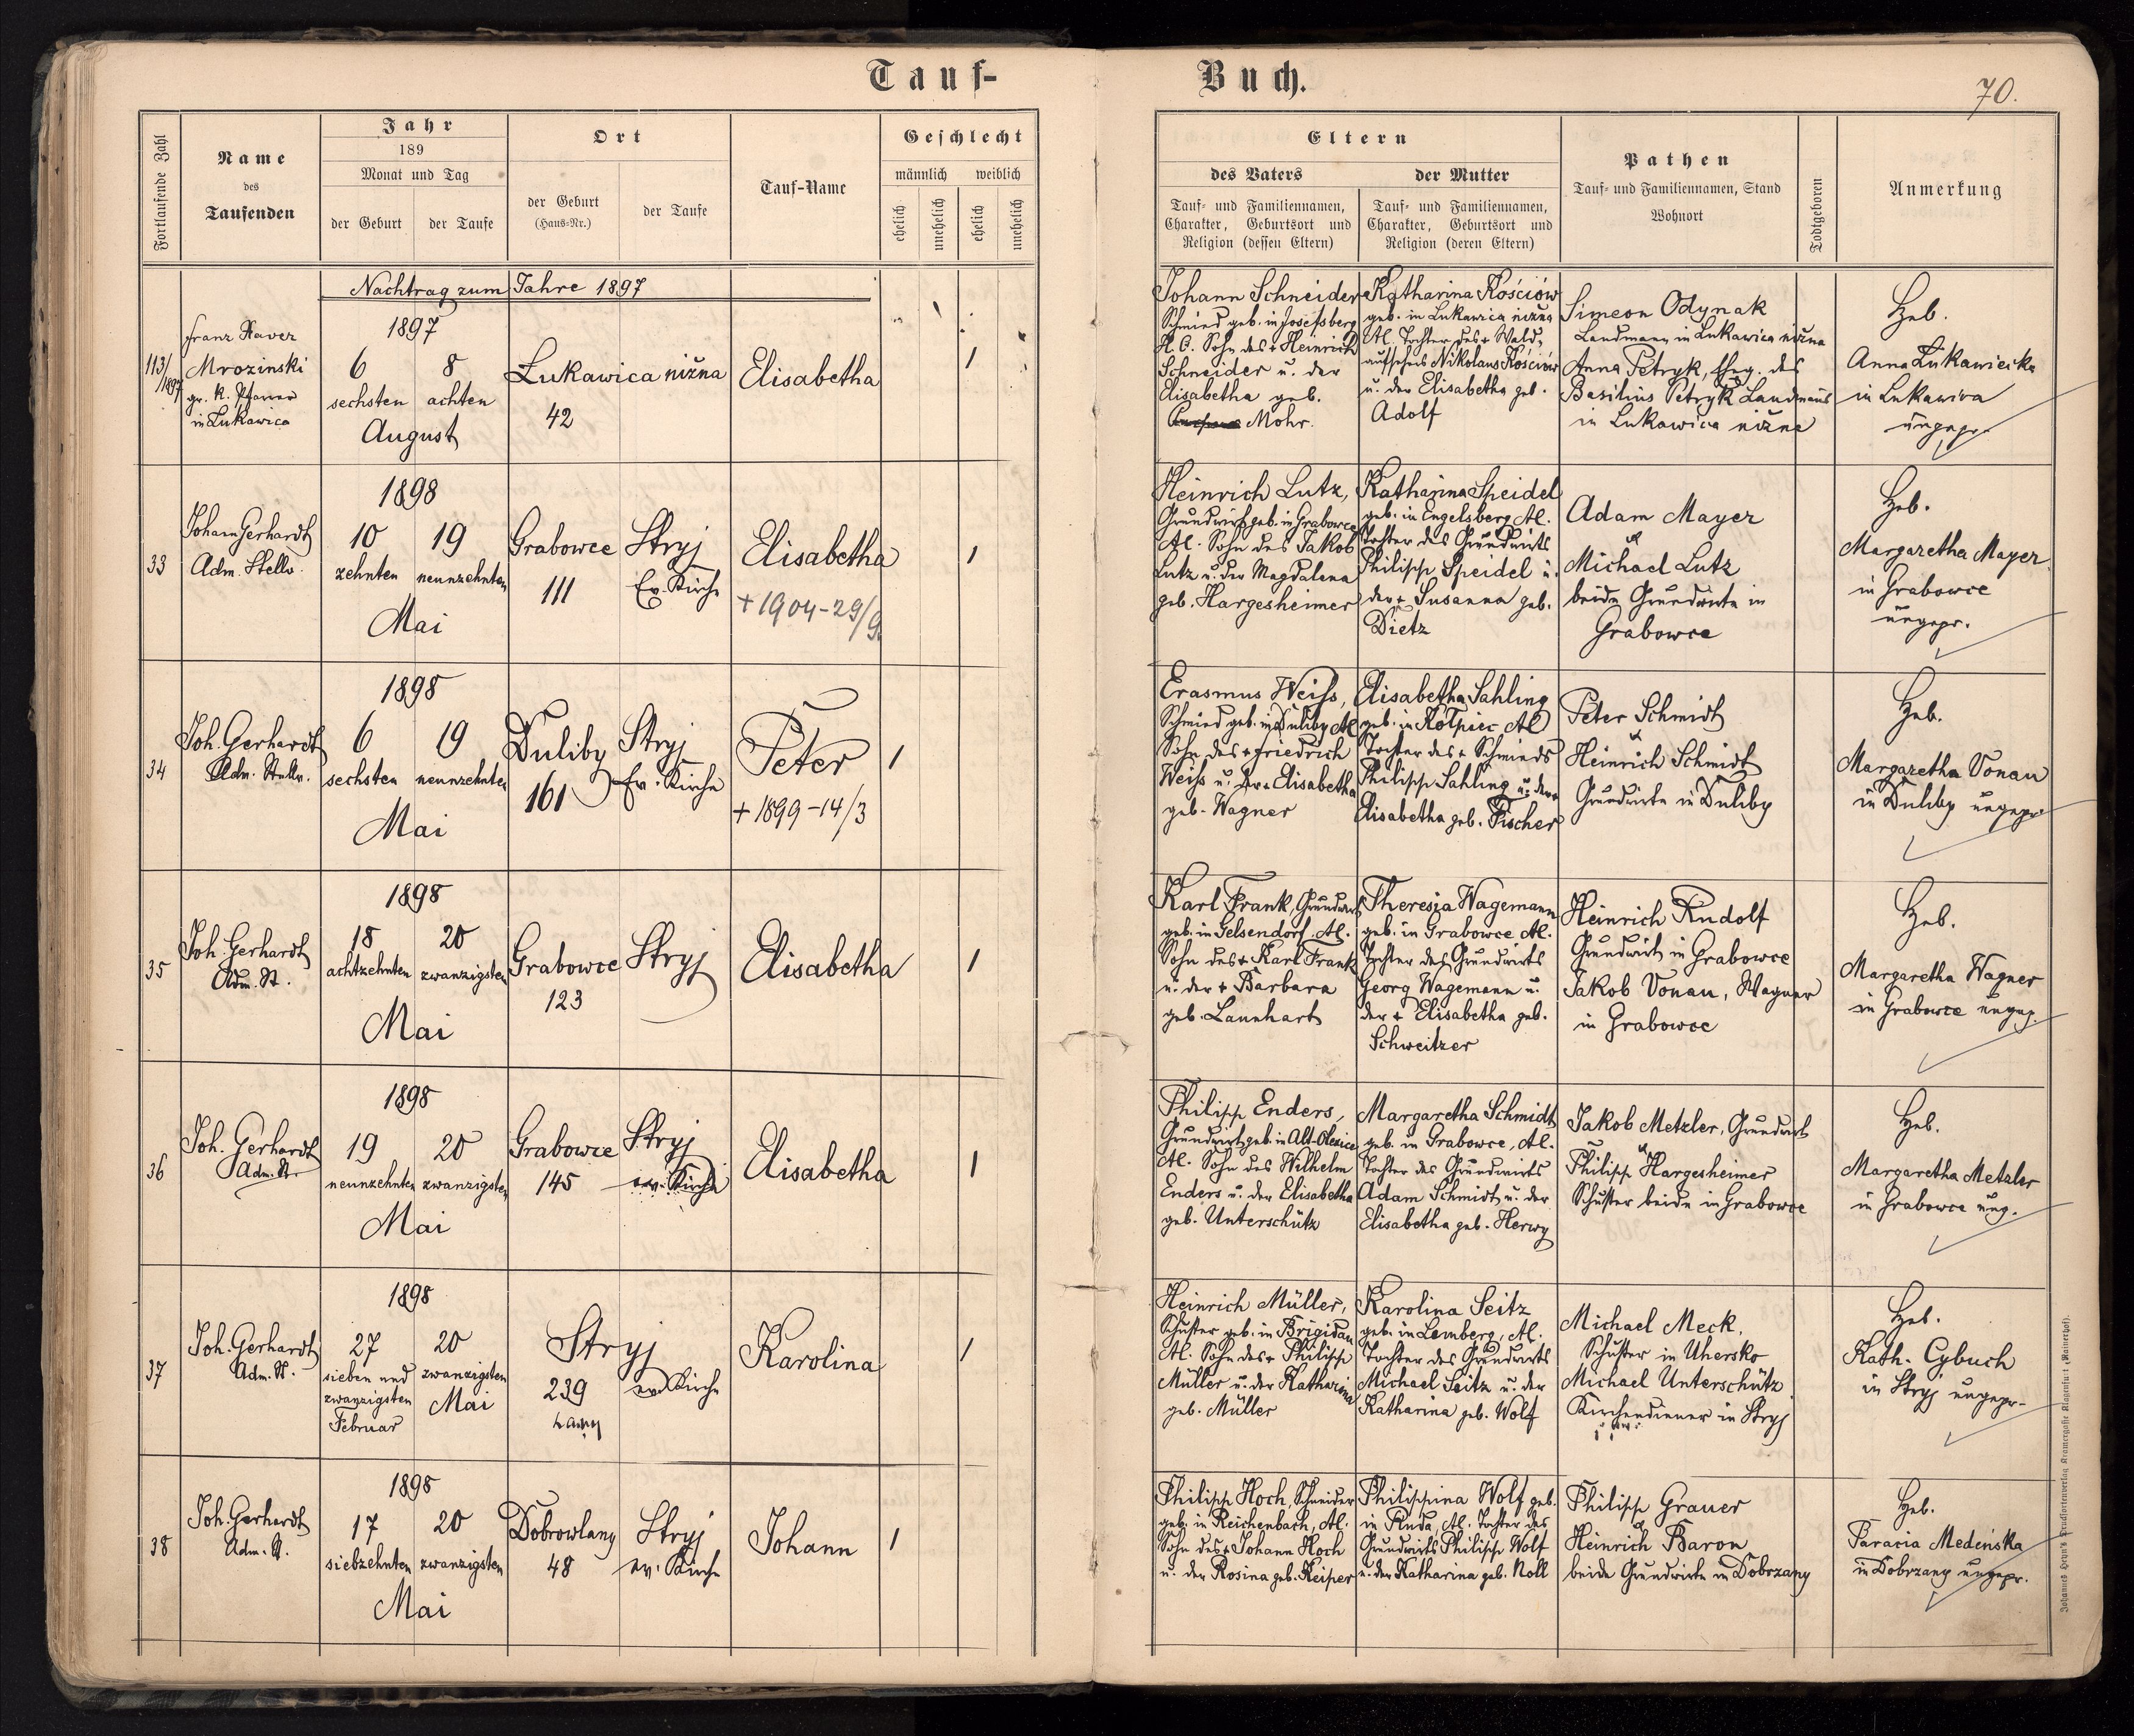 Tauf-
Buch.
70.
Fortlaufende Zahl
Name
des
Taufenden
Jahr
189
Monat und Tag
der Geburt
der Taufe
Ort
der Geburt
(Haus-Nr.)
der Taufe
Tauf-Name
Geschlecht
männlich
weiblich
ehelich
unehelich
ehelich
unehelich
Eltern
des Vaters
Tauf- und Familiennamen,
Charakter, Geburtsort und
Religion (dessen Eltern)
der Mutter
Tauf- und Familiennamen,
Charakter, Geburtsort und
Religion (deren Eltern)
Pathen
Tauf- und Familiennamen, Stand
Wohnort
Todtgeboren
Anmerkung
Nachtrag zum Jahre 1897
113/
1897
Franz Xaver
Mrozinski
gr. k. Pfarrer
in Lukawica
1897
6
8
sechsten
achten
August
Lukawica nižna
42
Elisabetha
1
Johann Schneider
Schmied geb. in Josefsberg
H. C. Sohn des + Heinrich
Schneider u. der
Elisabetha geb.
Mohr.
Katharina Kościów
geb. in Lukawica nižna
Al. Tochter des + Wald-
aufsehers Nikolaus Kościów
u. der Elisabetha geb.
Adolf
Simeon Odynak
Landmann in Lukawica nižna
Anna Petryk, Eheg. des
Basilius Petryk Landmanns
in Lukawica nižna
Heb.
Anna Lukawiecka
in Lukawica
ungepr.
33
Johann Gerhardt
Adm. Stellv.
1898
10
19
zehnten
neunzehnten
Mai
Grabowce
111
Stryj
Ev. Kirche
Elisabetha
+ 1904-29/9.
1
Heinrich Lutz,
Grundwirt geb. in Grabowce
Al. Sohn des Jakob
Lutz u. der Magdalena
geb. Hargesheimer
Katharina Speidel
geb. in Engelsberg Al.
Tochter des Grundwirts
Philipp Speidel u.
der + Susanna geb.
Dietz
Adam Mayer
&
Michael Lutz
beide Grundwirte in
Grabowce
Heb.
Margaretha Mayer
in Grabowce
ungepr.
34
Joh. Gerhardt
Adm. Stellv.
1898
6
19
sechsten
neunzehnten
Mai
Duliby
161
Stryj
Ev. Kirche
Peter
+ 1899-14/3
1
Erasmus Weiss,
Schmied geb. in Duliby Al.
Sohn des + Friedrich
Weiss u. der + Elisabetha
geb. Wagner
Elisabetha Sahling
geb. in Kolpiec Al
Tochter des + Schmieds
Philipp Sahling u. der +
Elisabetha geb. Fischer
Peter Schmidt
&
Heinrich Schmidt
Grundwirte in Duliby
Heb.
Margaretha Vonau
in Duliby ungepr.
35
Joh. Gerhardt
Adm. St.
1898
18
20
achtzehnten
zwanzigsten
Mai
Grabowce
123
Stryj
Elisabetha
1
Karl Frank, Grundwirt
geb. in Gelsendorf. Al.
Sohn des + Karl Frank
u. der + Barbara
geb. Lannhart
Theresia Wagemann
geb. in Grabowce Al.
Tochter des Grundwirts
Georg Wagemann u.
der + Elisabetha geb.
Schweitzer
Heinrich Rudolf
Grundwirt in Grabowce
Jakob Vonau, Wagner
in Grabowce
Heb.
Margaretha Wagner
in Grabowce ungep.
36
Joh. Gerhardt
Adm. St.
1898
19
20
neunzehnten
zwanzigsten
Mai
Grabowce
145
Stryj
ev. Kirche
Elisabetha
1
Philipp Enders,
Grundwirt, geb. in Alt-Olexice
Al. Sohn des Wilhelm
Enders u. der Elisabetha
geb. Unterschütz
Margaretha Schmidt
geb. in Grabowce, Al.
Tochter des Grundwirts
Adam Schmidt, u. der
Elisabetha geb. Herwy
Jakob Metzler, Grundwirt
&
Philipp Hargesheimer
Schuster beide in Grabowce
Heb.
Margaretha Metzler
in Grabowce ung.
37
Joh. Gerhardt
Adm. St.
1898
27
20
sieben und
zwanzigsten
zwanzigsten
Februar
Mai
Stryj
239
Lany
ev. Kirche
Karolina
1
Heinrich Müller,
Schuster geb. in Brigidau
Al. Sohn des + Philipp
Müller u. der Katharina
geb. Müller
Karolina Seitz
geb. in Lemberg, Al.
Tochter des Grundwirts
Michael Seitz u. der
Katharina geb. Wolf
Michael Meck,
Schuster in Uhersko
Michael Unterschütz
Kirchendiener in Stryj
Heb.
Kath. Cybuch
in Stryj ungepr.
38
Joh. Gerhardt
Adm. St.
1898
17
20
siebzehnten
zwanzigsten
Mai
Dobrowlany
48
Stryj
ev. Kirche
Johann
1
Philipp Hoch, Schneider
geb. in Reichenbach, Al.
Sohn des + Johann Hoch
u. der Rosina geb. Keiper
Philippina Wolf geb.
in Ruda, Al. Tochter des
Grundwirts Philipp Wolf
u. der Katharina geb. Noll
Philipp Grauer
&
Heinrich Baron
beide Grundwirte in Dobrzany
Heb.
Paracia Medeńska
in Dobrzany ungepr.